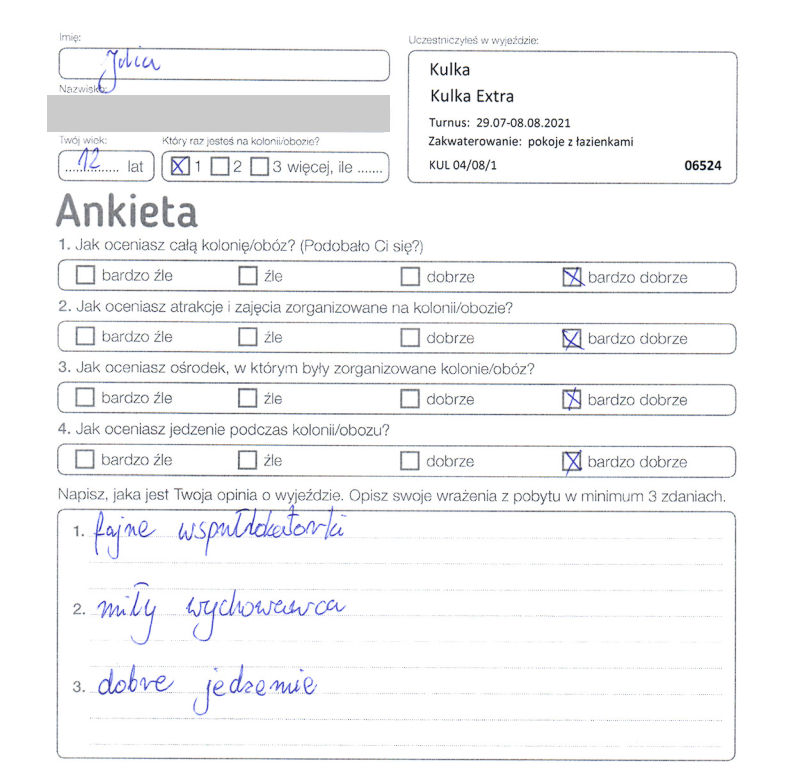 Imię:
Julia
Uczestniczyłeś w wyjeździe:
Kulka
Kulka Extra
Turnus: 29.07-08.08.2021
Zakwaterowanie: pokoje z łazienkami
KUL 04/08/1 06524
Nazwisko:
Twój wiek:
12 lat
Który raz jesteś na kolonii/obozie?
1 2 3 więcej, ile .......
Ankieta
1. Jak oceniasz całą kolonię/obóz? (Podobało Ci się?)
bardzo źle źle dobrze bardzo dobrze
2. Jak oceniasz atrakcje i zajęcia zorganizowane na kolonii/obozie?
bardzo źle źle dobrze bardzo dobrze
3. Jak oceniasz ośrodek, w którym były zorganizowane kolonie/obóz?
bardzo źle źle dobrze bardzo dobrze
4. Jak oceniasz jedzenie podczas kolonii/obozu?
bardzo źle źle dobrze bardzo dobrze
Napisz, jaka jest Twoja opinia o wyjeździe. Opisz swoje wrażenia z pobytu w minimum 3 zdaniach.
1. fajne wspułlokatorki
2. miły wychowawca
3. dobre jedzenie